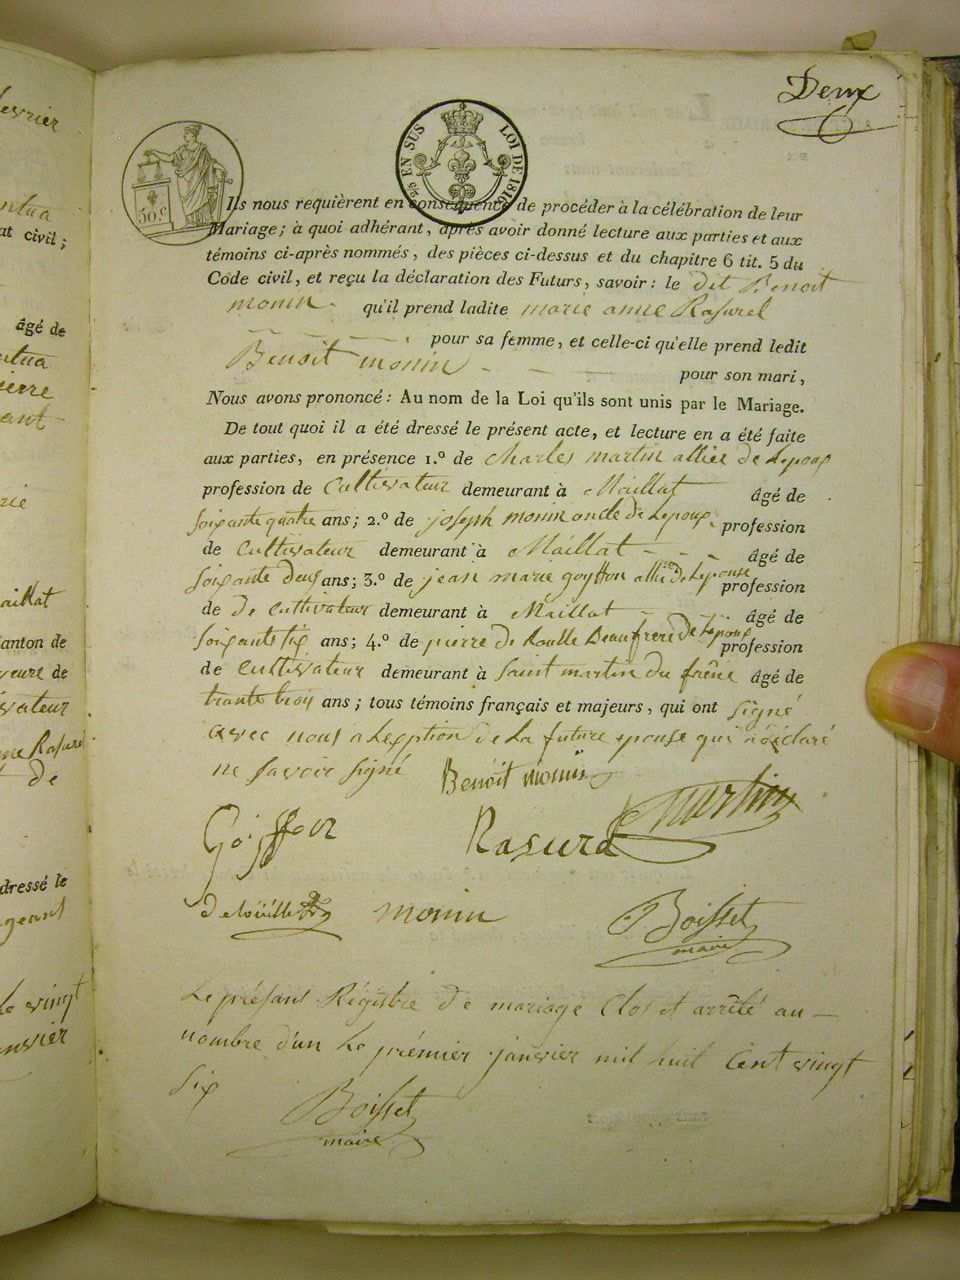 Deux
EN SUS
LOI DE 1816
50 c
Ils nous requièrent en conséquence de procéder à la célébration de leur
Mariage; à quoi adhérant, après avoir donné lecture aux parties et aux
témoins ci-après nommés, des pièces ci-dessus et du chapitre 6 tit. 5 du
Code civil, et reçu la déclaration des Futurs, savoir: le dit Benoit
monin qu'il prend ladite marie anne Rasurel
pour sa femme, et celle-ci qu'elle prend ledit
Benoit monin - - pour son mari,
Nous avons prononcé: Au nom de la Loi qu'ils sont unis par le Mariage.
De tout quoi il a été dressé le présent acte, et lecture en a été faite
aux parties, en présence 1.º de charles martin alliée de Lepoux
profession de Cultivateur demeurant à Maillat âgé de
soixante quatre ans; 2.º de joseph monin oncle de Lepoux profession
de Cultivateur demeurant à Maillat - - - âgé de
soixante deux ans; 3.º de jean marie goyffon allié de Lepouse profession
de de Cultivateur demeurant à Maillat - - âgé de
soixante six ans; 4.º de pierre de Roulle Beaufrere de Lepoux profession
de Cultivateur demeurant à saint martin du frêne âgé de
trante trois ans; tous témoins français et majeurs, qui ont signé
avec nous a Lexption de La future epouse qui a déclaré
ne savoir signé Benoit monin
martin
Goiffon Rasurel
monin Boisset
maire
Le présans Régistre de mariage Clos et arrêté au -
nombre d'un Le prémier janvier mil huit Cent vingt
six
Boisset
maire
evrier
at civil;
âgé de
ierre
aillat
anton de
ivateur
de
dressé le
Le vingt